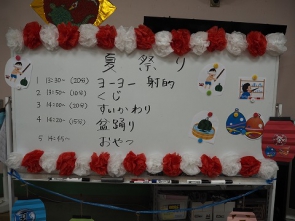 夏祭り
1 13:30~(20分) ヨーヨー 射的
2 13:50~(10分) くじ
3 14:00~(20分) すいかわり
4 14:20~(15分) 盆踊り
5 14:35~ おやつ